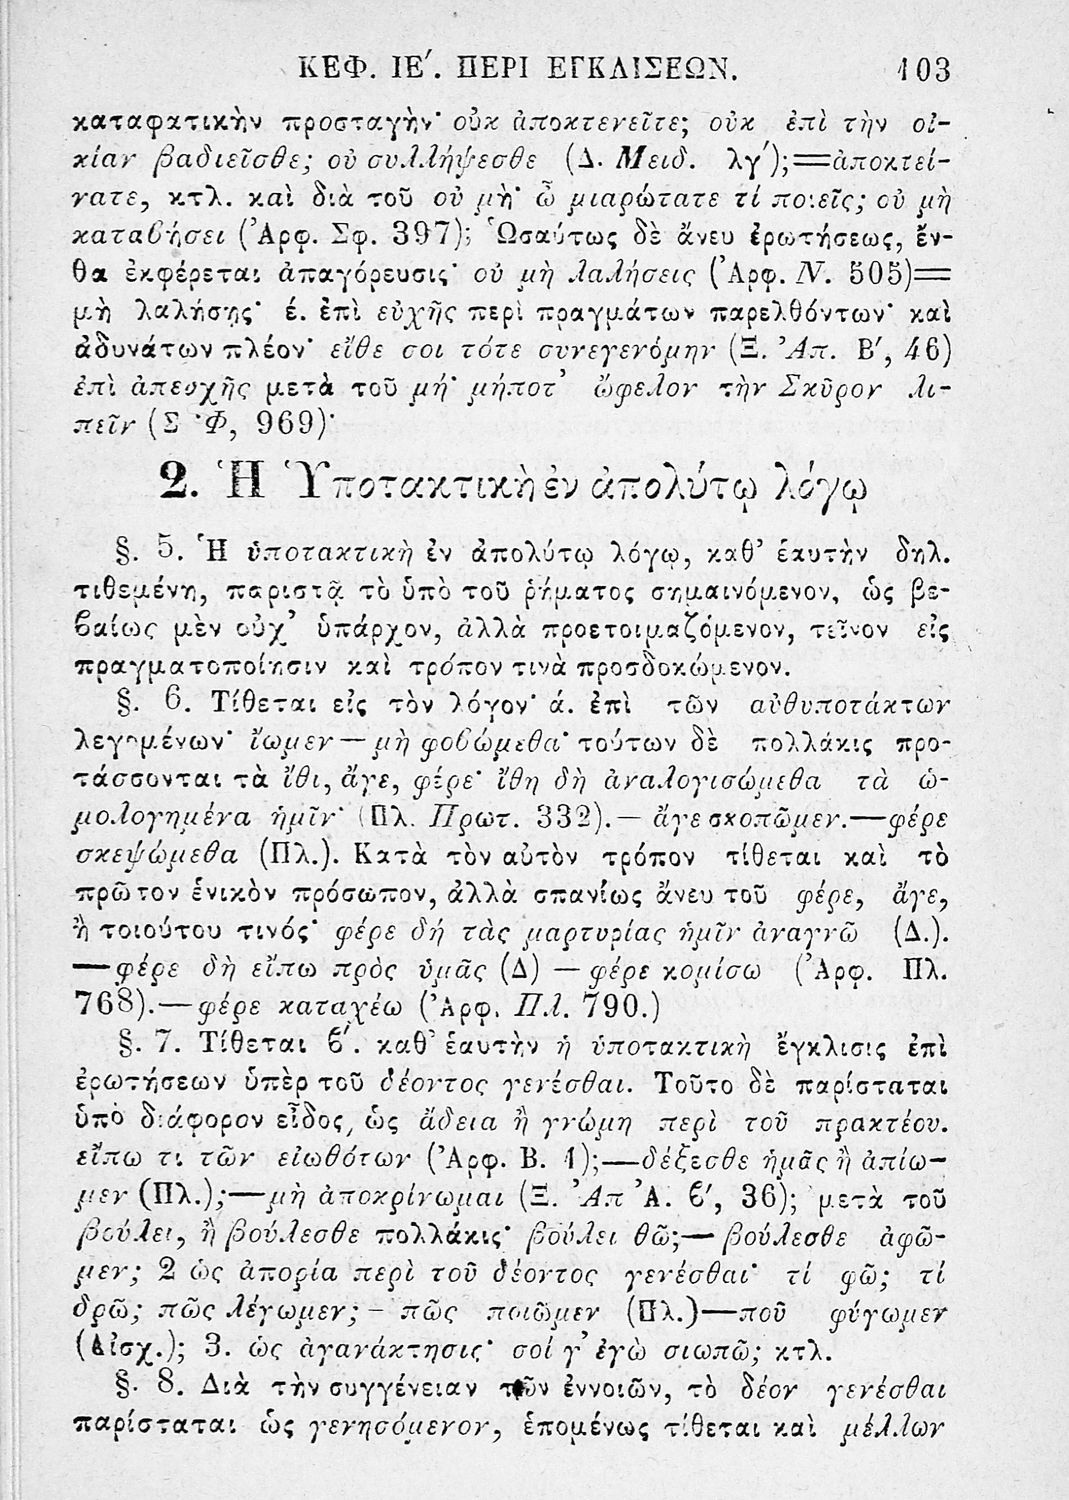 ΚΕΦ. ΙΕ΄. ΠΕΡΙ ΕΓΚΛΙΣΕΩΝ. 103
καταφατικὴν προσταγήν· οὐκ ἀποκτενεῖτε; οὐκ ἐπὶ τὴν οἰ-
κίαν βαδιεῖσθε; οὐ συλλήψεσθε (Δ. Μειδ. λγ΄);=ἀποκτεί-
νατε, κτλ. καὶ διὰ τοῦ οὐ μὴ· ὦ μιαρώτατε τί ποιεῖς; οὐ μὴ
καταβήσει (Ἀρφ. Σφ. 397); Ὡσαύτως δὲ ἄνευ ἐρωτήσεως, ἔν-
θα ἐκφέρεται ἀπαγόρευσις· οὐ μὴ λαλήσεις (Ἀρφ. Ν. 505)=
μὴ λαλήσης· έ. ἐπὶ εὐχῆς περὶ πραγμάτων παρελθόντων· καὶ
ἀδυνάτων πλέον· εἴθε σοι τότε συνεγενόμην (Ξ. Ἀπ. Β΄, 46)
ἐπὶ ἀπευχῆς μετὰ τοῦ μή· μήποτ’ ὤφελον τὴν Σκῦρον λι-
πεῖν (Σ Φ, 969)·
2. Ἡ Ὑποτακτικὴ ἐν ἀπολύτῳ λόγῳ
§. 5. Ἡ ὑποτακτικὴ ἐν ἀπολύτῳ λόγῳ, καθ’ ἑαυτὴν δηλ.
τιθεμένη, παριστᾷ τὸ ὑπὸ τοῦ ῥήματος σημαινόμενον, ὡς βε-
βαίως μὲν οὐχ’ ὑπάρχον, ἀλλὰ προετοιμαζόμενον, τεῖνον εἰς
πραγματοποίησιν καὶ τρόπον τινὰ προσδοκώμενον.
§. 6. Τίθεται εἰς τὸν λόγον· ά. ἐπὶ τῶν αὐθυποτάκτων
λεγομένων· ἴωμεν — μὴ φοβώμεθα· τούτων δὲ πολλάκις προ-
τάσσονται τὰ ἴθι, ἄγε, φέρε· ἴθη δὴ ἀναλογισώμεθα τὰ ὡ-
μολογημένα ἡμῖν· (Πλ. Πρωτ. 332).— ἄγε σκοπῶμεν.—φέρε
σκεψώμεθα (Πλ.). Κατὰ τὸν αὐτὸν τρόπον τίθεται καὶ τὸ
πρῶτον ἑνικὸν πρόσωπον, ἀλλὰ σπανίως ἄνευ τοῦ φέρε, ἄγε,
ἢ τοιούτου τινός· φέρε δή τὰς μαρτυρίας ἡμῖν ἀναγνῶ (Δ.).
—φέρε δὴ εἴπω πρὸς ὑμᾶς (Δ) — φέρε κομίσω (Ἀρφ. Πλ.
768).—φέρε καταχέω (Ἀρφ. Πλ. 790.)
§. 7. Τίθεται β΄. καθ’ ἑαυτὴν ἡ ὑποτακτικὴ ἔγκλισις ἐπὶ
ἐρωτήσεων ὑπὲρ τοῦ δέοντος γενέσθαι. Τοῦτο δὲ παρίσταται
ὑπὸ διάφορον εἶδος, ὡς ἄδεια ἢ γνώμη περὶ τοῦ πρακτέου.
εἴπω τι τῶν εἰωθότων (Ἀρφ. Β. 1);—δέξεσθε ἡμᾶς ἢ ἀπίω-
μεν (Πλ.);—μὴ ἀποκρίνωμαι (Ξ. Ἀπ Ἀ. β΄, 36); μετὰ τοῦ
βούλει, ἢ βούλεσθε πολλάκις· βούλει θῶ;— βούλεσθε ἀφῶ-
μεν; 2 ὡς ἀπορία περὶ τοῦ δέοντος γενέσθαι· τί φῶ; τί
δρῶ; πῶς λέγωμεν; – πῶς ποιῶμεν (Πλ.)—ποῦ φύγωμεν
(Αἰσχ.); 3. ὡς ἀγανάκτησις· σοί γ’ ἐγὼ σιωπῶ; κτλ.
§. 8. Διὰ τὴν συγγένειαν τῶν ἐννοιῶν, τὸ δέον γενέσθαι
παρίσταται ὡς γενησόμενον, ἑπομένως τίθεται καὶ μέλλων